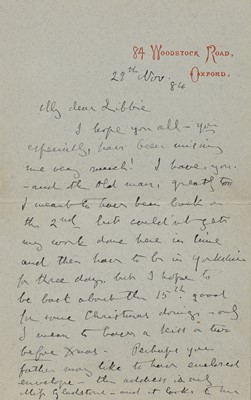 84 Woodstock Road,
Oxford.
28th Nov. 84
My dear Libbie
I hope you all – you
especially, have been missing
me very much! I have, you
– and the Old man, greatly too
I meant to have been back on
the 2nd but couldn't get
my work done here in time
and then have to be in Yorkshire
for three days, but I hope to
be back about the 15th. good
for some Christmas doings – only
I mean to have a kiss or two
before Xmas – Perhaps your
father may like to have enclosed
envelope – the address is only
Miss Gladstone – and it looks to me